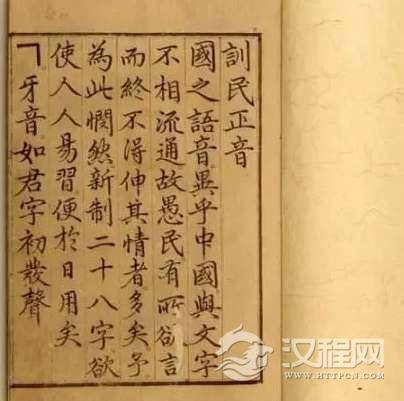 訓民正音
國之語音異乎中國與文字
不相流通故愚民有所欲言
而終不得伸其情者多矣予
為此憫然新制二十八字欲
使人人易習便於日用矣
ㄱ牙音如君字初發聲
汉程网
WWW.HTTPCN.COM